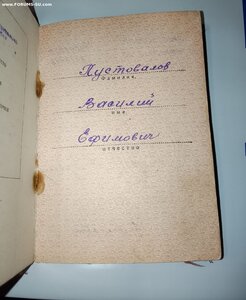 © www.FORUMS-SU.com
Пустовалов
фамилия,
Василий
имя
Ефимович
отчество